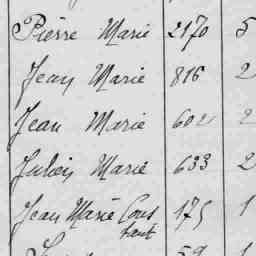 Pierre Marie 2170 5
Jean Marie 816 2
Jean Marie 602 2
Julien Marie 633 2
Jean Marie Cons 175 1
tant
59 1